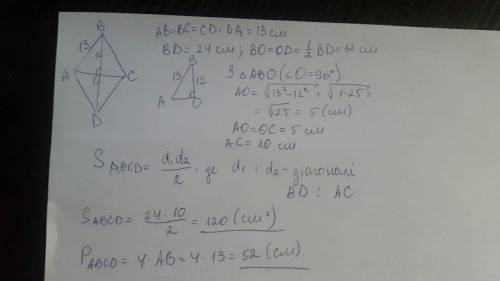 AB=BC=CD=DA=13см
BD=24см; BO=OD=1/2 BD=12см
B
13
12
A
O
C
D
B
13
12
A
O
З △ABO(∠O=90°).
AO=√13²-12²=√1·25=
=√25=5(см)
AO=OC=5см
AC=10см
S ABCD=d₁d₂/2, де d₁ і d₂-діагоналі
BD і AC
S ABCD=24·10/2=120(см²)
P ABCD=4·AB=4·13=52(см).